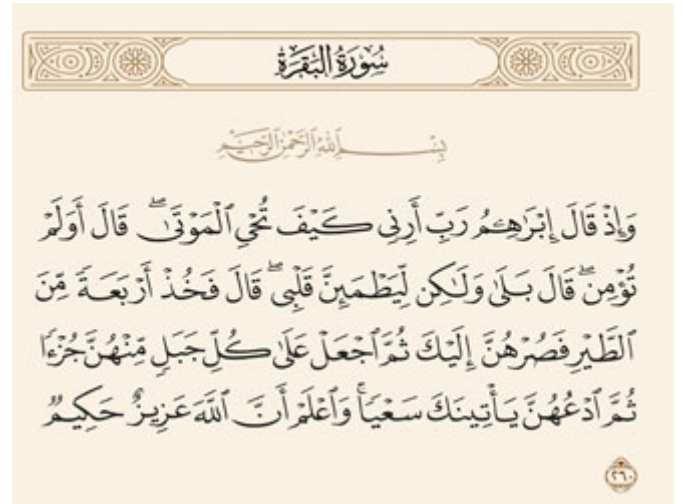 سُورَةُ البَقَرَةِ
بِسْمِ ٱللَّهِ ٱلرَّحْمَٰنِ ٱلرَّحِيمِ
وَإِذْ قَالَ إِبْرَٰهِـۧمُ رَبِّ أَرِنِى كَيْفَ تُحْىِ ٱلْمَوْتَىٰ ۖ قَالَ أَوَلَمْ
تُؤْمِن ۖ قَالَ بَلَىٰ وَلَٰكِن لِّيَطْمَئِنَّ قَلْبِى ۖ قَالَ فَخُذْ أَرْبَعَةً مِّنَ
ٱلطَّيْرِ فَصُرْهُنَّ إِلَيْكَ ثُمَّ ٱجْعَلْ عَلَىٰ كُلِّ جَبَلٍ مِّنْهُنَّ جُزْءًا
ثُمَّ ٱدْعُهُنَّ يَأْتِينَكَ سَعْيًا ۚ وَٱعْلَمْ أَنَّ ٱللَّهَ عَزِيزٌ حَكِيمٌ
٢٦٠